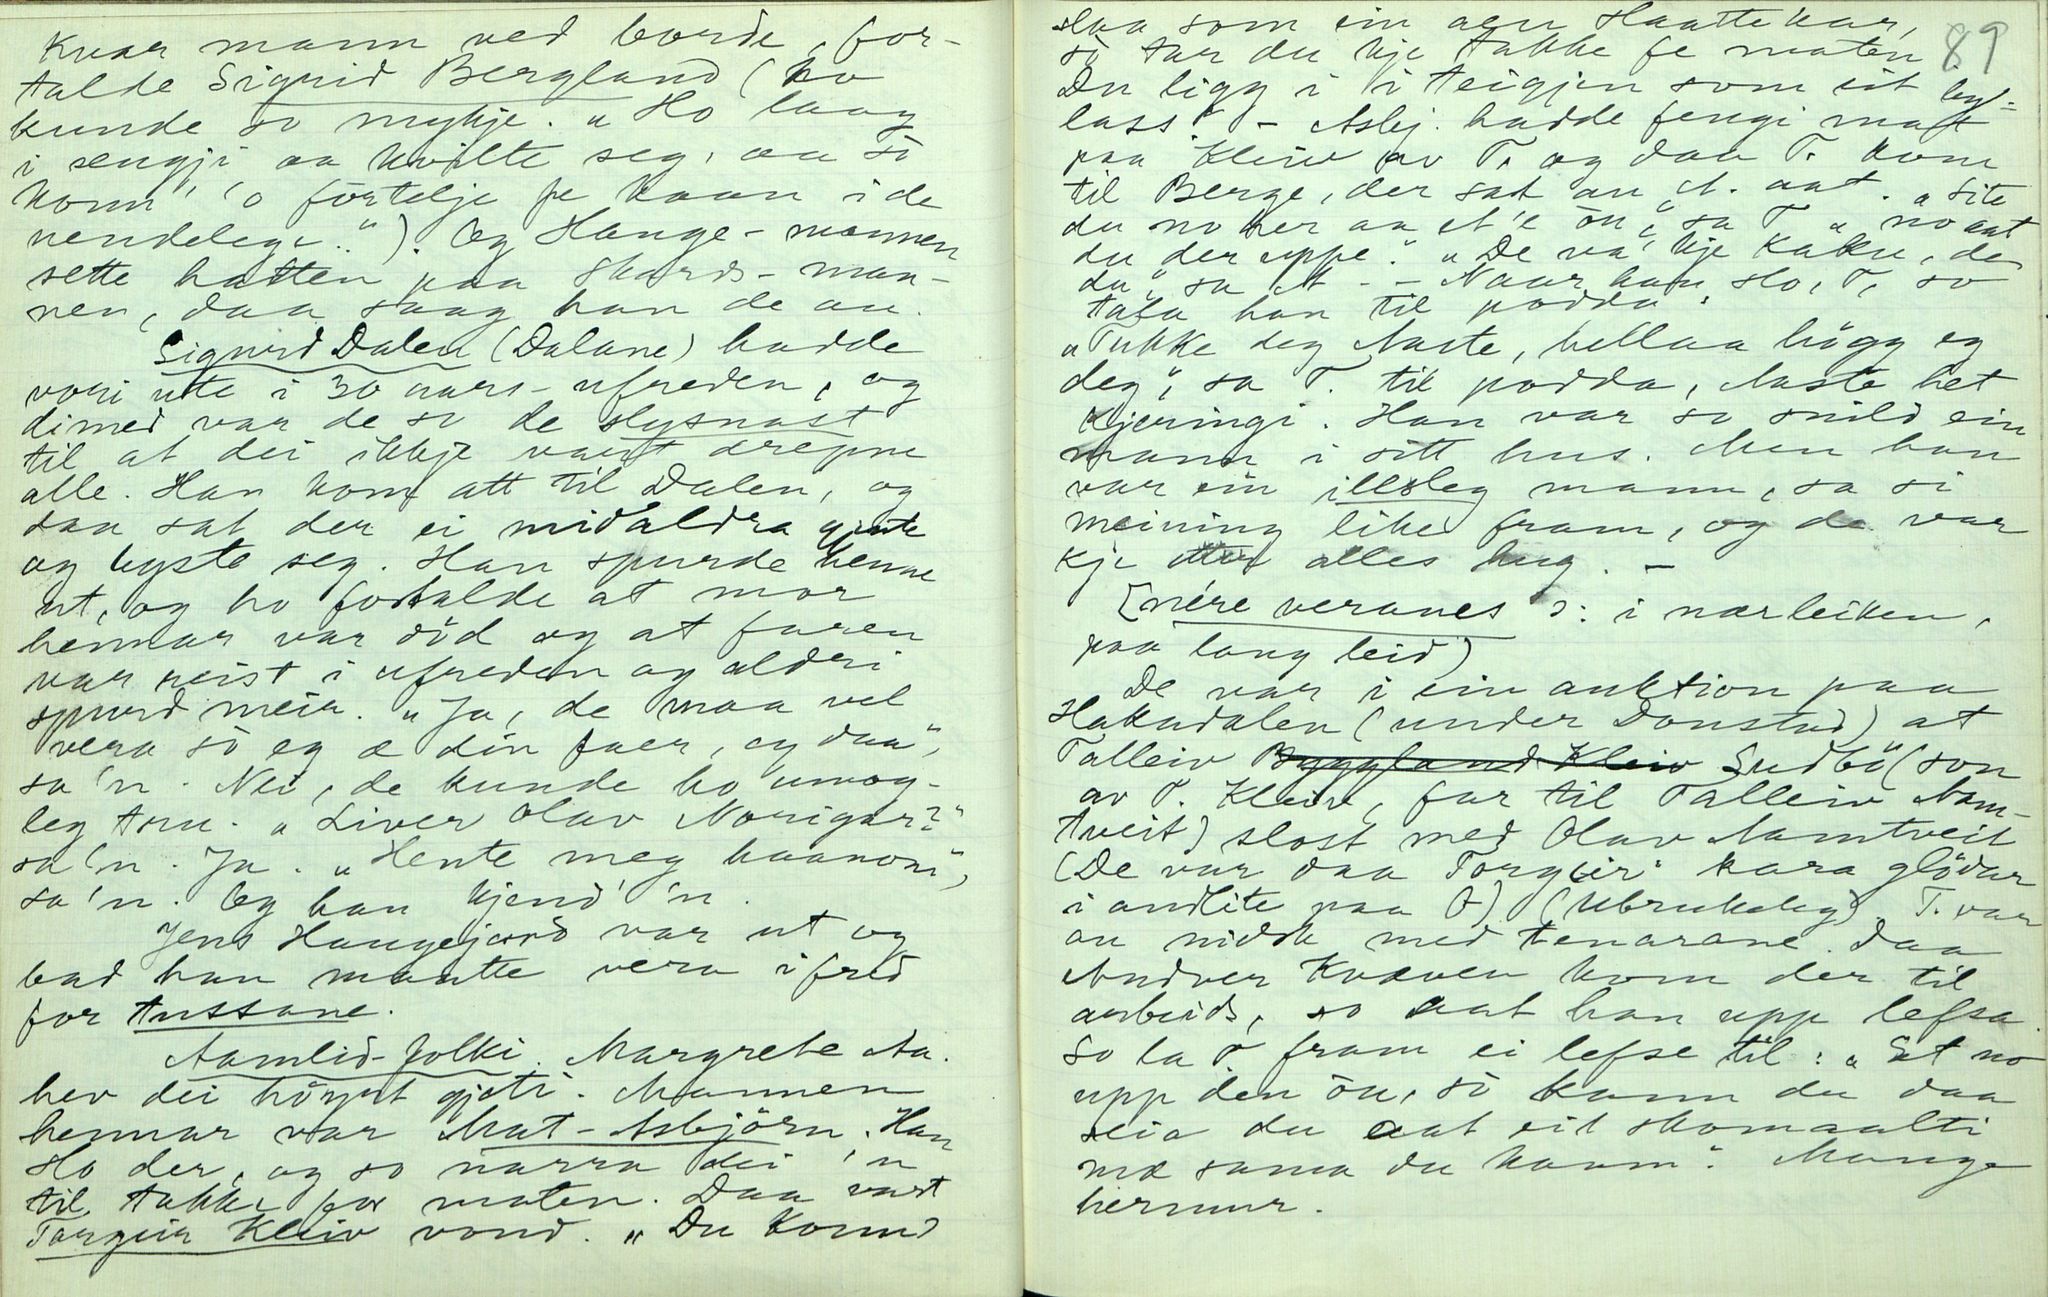 kvar mann ved borde, for-
talde Sigrid Bergland (ho
kunde so mykje. "Ho laag
i sengji aa kvilte seg, aa so
kom 'o förtelje fe haan i de
nendelege.."). Og Hauge-mannen
sette hatten paa Skards-man-
nen, daa saag han de au.
Sigurd Dalen (Dalane) hadde
vori ute i 30 aars-ufreden, og
dimed var de so de slysnast
til at dei ikkje vart drepne
alle. Han kom att til Dalen, og
daa sat der ei midaldra gjente
og lyste seg. Han spurde henne
ut, og ho fortalde at mor
hennar var död og at faren
var reist i ufreden og aldri
spurd meir. "Ja, de maa vel
vera so eg æ din faer, eg daa",
sa 'n. Nei, de kunde ho umog-
leg tru. "Liver Olav Norigar?"
sa 'n. Ja. "Hente meg haanom",
sa 'n. Og han kjend' 'n.
Jens Haugejord var ut og
bad han maatte vera i fred
for tussane.
Aamlid-folki. Margrete Aa.
hev dei högst gjeti. Mannen
hennar var Mat-Asbjörn. Han
slo der, og so narra dei 'n
til takke for maten. Daa vart
Torgeir Kleiv vond. "Du kann
slaa som ein aen Haattekar,
so tar du kje takke fe maten. 89
Du ligg i i teigjen som eit
lass" - Asbj. hadde fengi mat
paa Kleiv av T. og daa T. kom
til Berge, der sat an A. aat. "Site
du no her aa et'e ön," sa T "no aat
du der uppe." "De va' kje kaku, de
da", sa A - - Naar han slo, T, so
tala han til podda.
"Tukke deg Aaste, hellaa högg eg
deg", sa T. til podda, Aaste het
kjeringi. Han var so snild ein
mann i sitt hus. Men han
var ein illsleg mann, sa si
meining like fram, og de var
kje etter alles hug. -
[nére veranes ɔ: i nærleiken,
paa lang leid)
De var i ein auktion paa
Hakadalen (under Donstad) at
Talleiv Byggland Kleiv Sudbö (son
av T. Kleiv, far til Talleiv Aam-
tveit) slost med Olav Aamtveit
(De var daa Torgeir kara glödar
i andlite paa O) (Ubrukeleg). T. var
an nidsk med tenarane. Daa
Andver Kvæven kom der til
arbeids, so aat han upp lefsa.
So la T fram ei lefse til: "Et no
upp den öu, so kann du daa
seia du aat eit skomaalti
mæ sama du kaam". Mange
hermur.